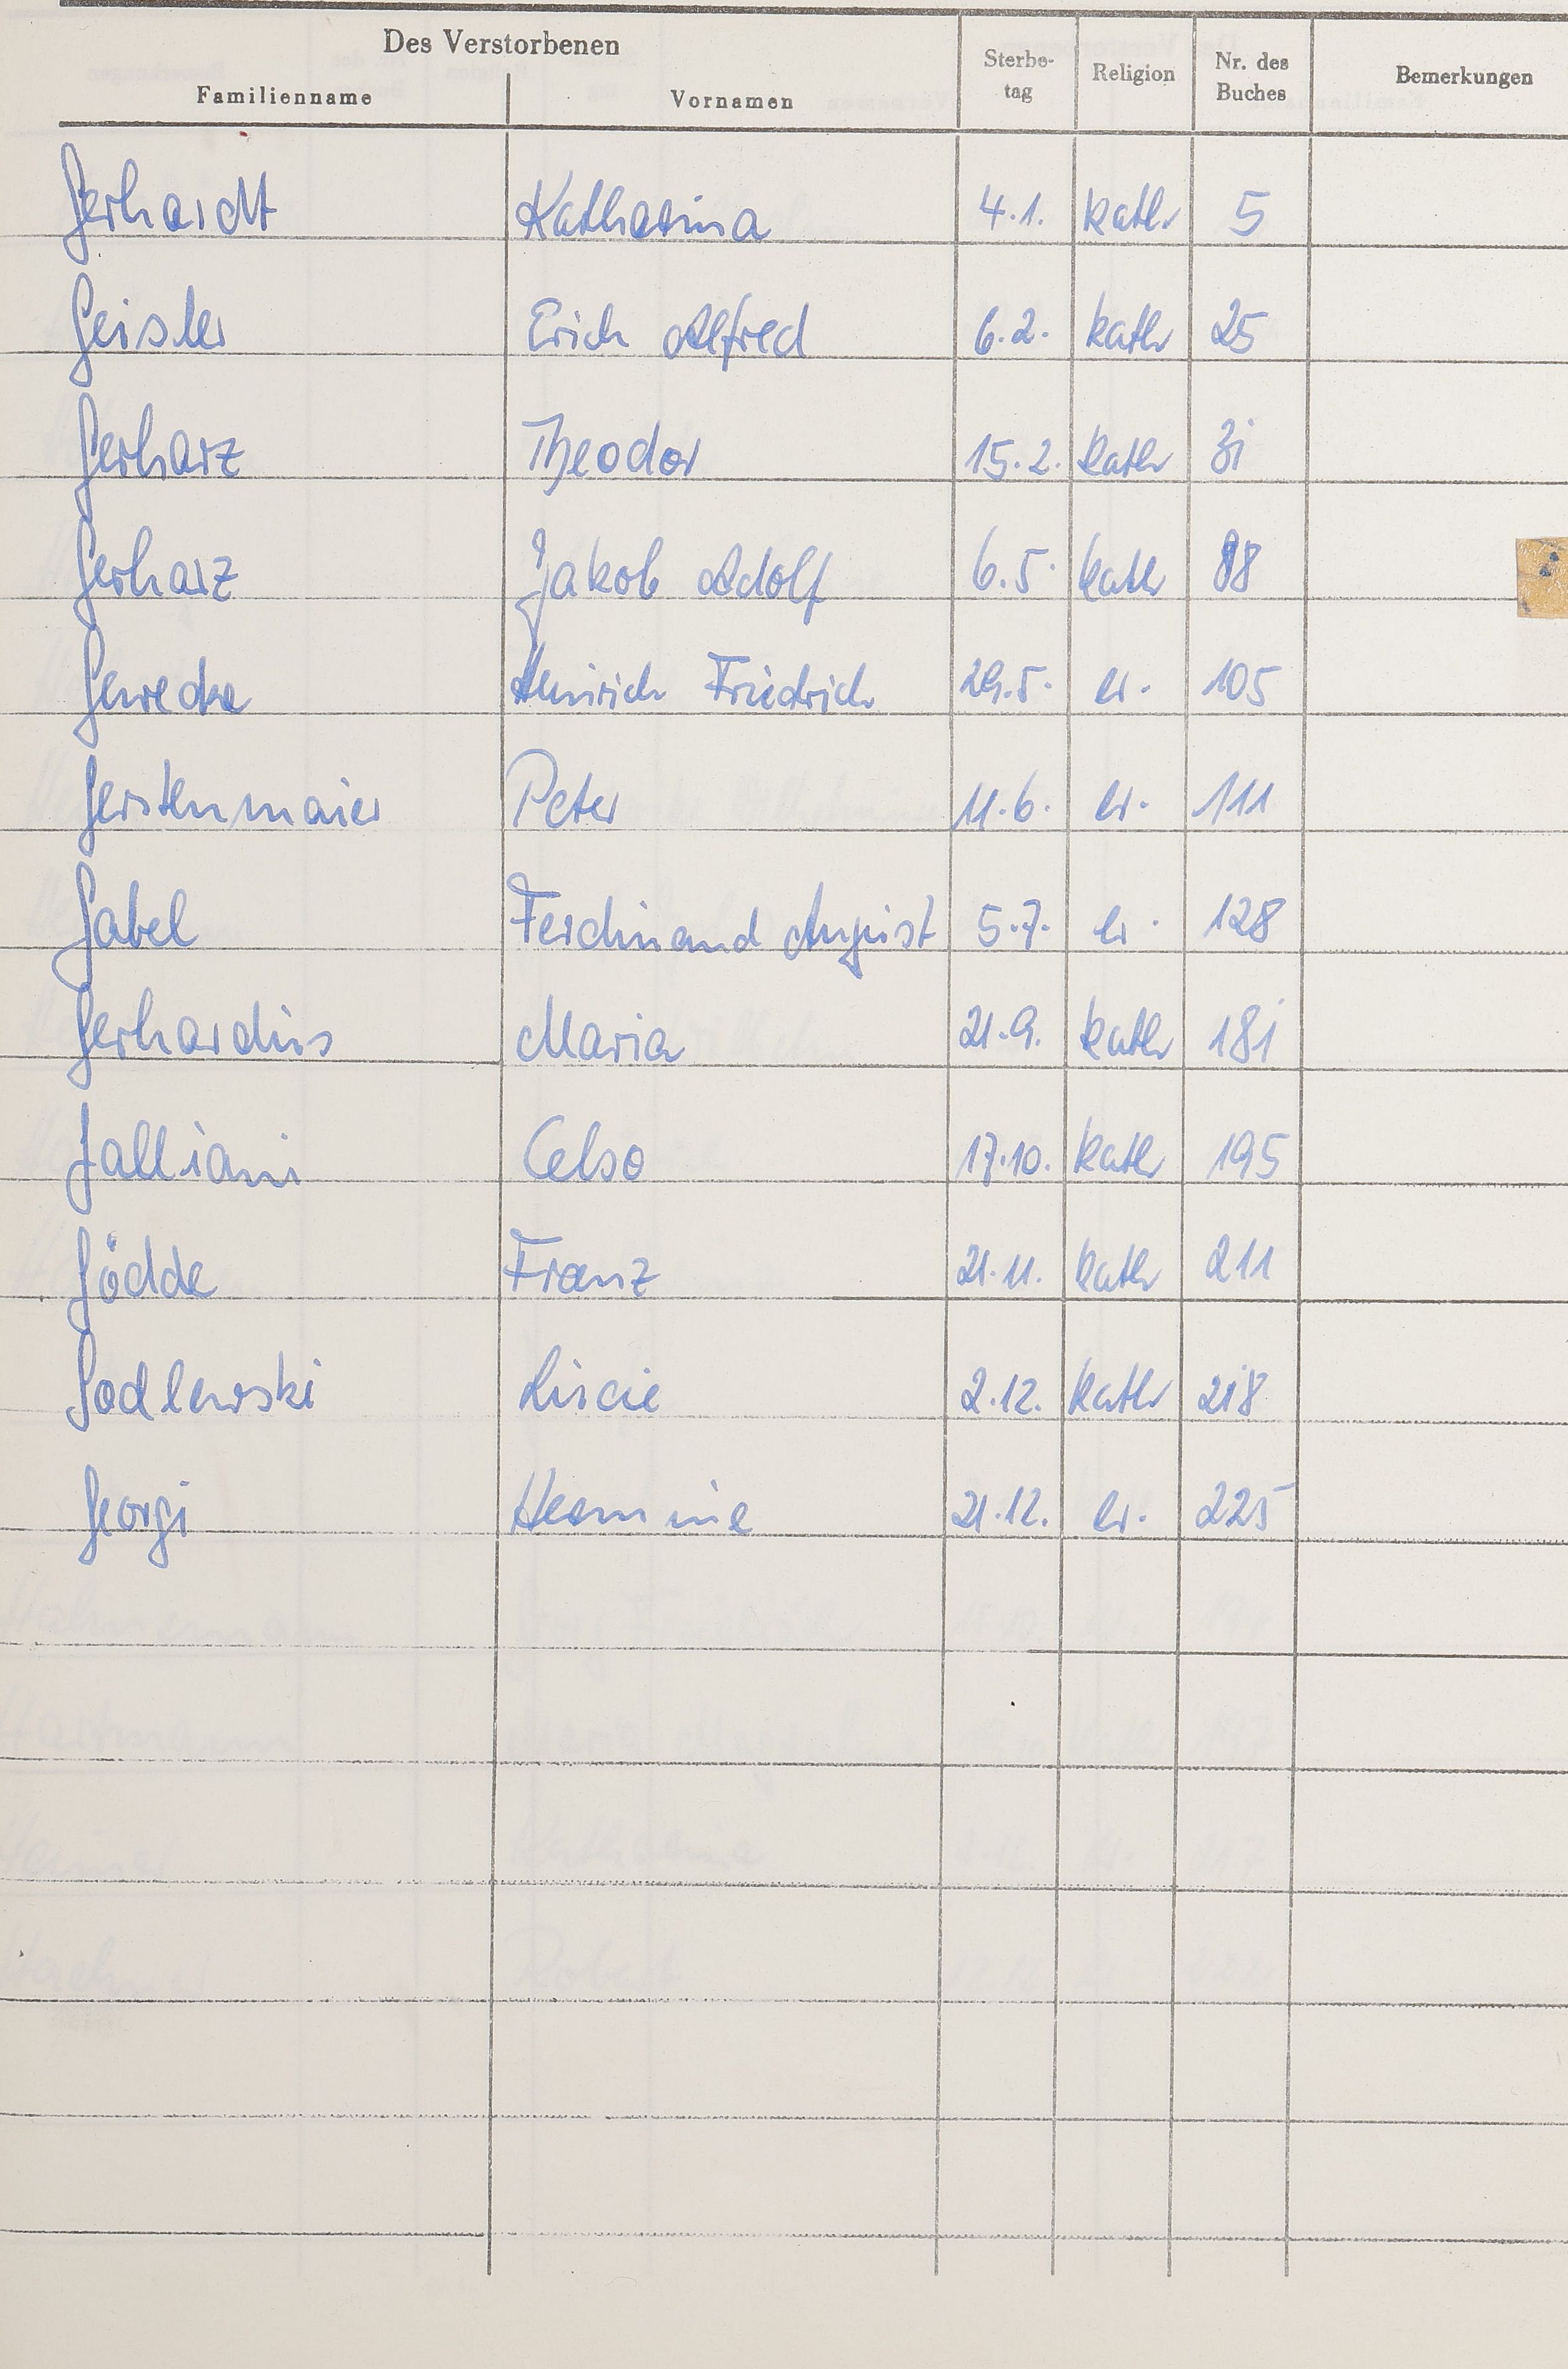 Des Verstorbenen
Familienname Vornamen Sterbe-tag Religion Nr. des Buches Bemerkungen
Gerhardt Katharina 4.1. kath 5
Geisler Erich Alfred 6.2. kath 25
Gerharz Theodor 15.2. kath 31
Gerharz Jakob Adolf 6.5. kath 88
Gewecke Heinrich Friedrich 29.5. ev. 105
Gerstenmaier Peter 11.6. ev. 111
Gabel Ferdinand August 5.7. ev. 128
Gerhardus Maria 21.9. kath 181
Galliani Celso 17.10. kath 195
Gödde Franz 21.11. kath 211
Godlewski Lucie 2.12. kath 218
Georgi Hermine 21.12. ev. 225